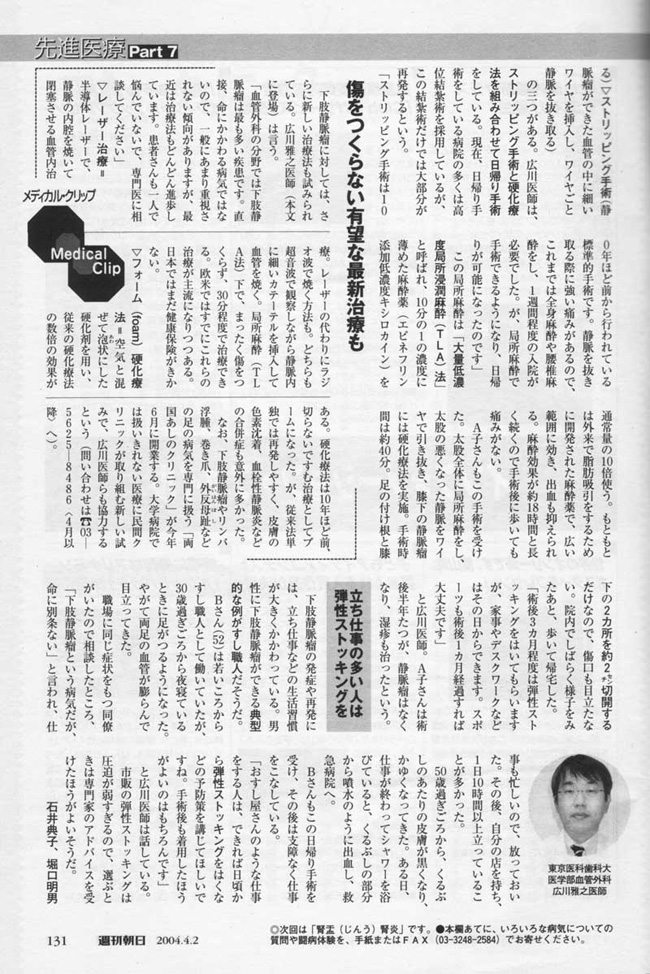 先進医療 Part 7
る）▽ストリッピング手術（静
脈瘤ができた血管の中に細い
ワイヤを挿入し、ワイヤごと
静脈を抜き取る）
の三つがある。広川医師は、
ストリッピング手術と硬化療
法を組み合わせて日帰り手術
をしている。現在、日帰り手
術をしている病院の多くは高
位結紮術を採用しているが、
この結紮術だけでは大部分が
再発するという。
「ストリッピング手術は１０
０年ほど前から行われている
標準的手術です。静脈を抜き
取る際に強い痛みがあるので、
これまでは全身麻酔や腰椎麻
酔をし、１週間程度の入院が
必要でした。が、局所麻酔で
手術できるようになり、日帰
りが可能になったのです」
この局所麻酔は「大量低濃
度局所浸潤麻酔（ＴＬＡ）法」
と呼ばれ、１０分の１の濃度に
薄めた麻酔薬（エピネフリン
添加低濃度キシロカイン）を
通常量の１０倍使う。もともと
は外来で脂肪吸引をするため
に開発された麻酔薬で、広い
範囲に効き、出血も抑えられ
る。麻酔効果が約１８時間と長
く続くので手術後に歩いても
痛みがない。
Ａ子さんもこの手術を受け
た。太股全体に局所麻酔をし、
太股の悪くなった静脈をワイ
ヤで引き抜き、膝下の静脈瘤
には硬化療法を実施。手術時
間は約４０分。足の付け根と膝
下の２カ所を約２㌢切開する
だけなので、傷口も目立たな
い。院内でしばらく様子をみ
たあと、歩いて帰宅した。
「術後３カ月程度は弾性スト
ッキングをはいてもらいます
が、家事やデスクワークなど
はその日からできます。スポ
ーツも術後１カ月経過すれば
大丈夫です」
と広川医師。Ａ子さんは術
後半年たつが、静脈瘤はなく
なり、湿疹も治ったという。
立ち仕事の多い人は
弾性ストッキングを
下肢静脈瘤の発症や再発に
は、立ち仕事などの生活習慣
が大きくかかわっている。男
性に下肢静脈瘤ができる典型
的な例がすし職人だそうだ。
Ｂさん（５２）は若いころから
すし職人として働いていたが、
３０歳過ぎごろから夜寝ている
ときに足がつるようになった。
やがて両足の血管が膨らんで
目立ってきた。
職場に同じ症状をもつ同僚
がいたので相談したところ、
「下肢静脈瘤という病気だが、
命に別条ない」と言われ、仕
事も忙しいので、放っておい
た。その後、自分の店を持ち、
１日１０時間以上立っているこ
とが多かった。
５０歳過ぎごろから、くるぶ
しのあたりの皮膚が黒くなり、
かゆくなってきた。ある日、
仕事が終わってシャワーを浴
びていると、くるぶしの部分
から噴水のように出血し、救
急病院へ。
Ｂさんもこの日帰り手術を
受け、その後は支障なく仕事
をこなしている。
「おすし屋さんのような仕事
をする人は、できれば日頃か
ら弾性ストッキングをはくな
どの予防策を講じてほしいで
すね。手術後も着用したほう
がよいのはもちろんです」
と広川医師は話している。
市販の弾性ストッキングは
圧迫が弱すぎるので、選ぶと
きは専門家のアドバイスを受
けたほうがよいそうだ。
石井典子、堀口明男
東京医科歯科大
医学部血管外科
広川雅之医師
メディカル・クリップ
Medical
Clip
傷をつくらない有望な最新治療も
下肢静脈瘤に対しては、さ
らに新しい治療法も試みられ
ている。広川雅之医師（本文
に登場）は言う。
「血管外科の分野では下肢静
脈瘤は最も多い疾患です。直
接、命にかかわる病気ではな
いので、一般にあまり重視さ
れない傾向がありますが、最
近は治療法もどんどん進歩し
ています。患者さんも一人で
悩んでいないで、専門医に相
談してください」
▽レーザー治療＝
半導体レーザーで、
静脈の内腔を焼いて
閉塞させる血管内治
療。レーザーの代わりにラジ
オ波で焼く方法も。どちらも
超音波で観察しながら静脈内
に細いカテーテルを挿入して
血管を焼く。局所麻酔（ＴＬ
Ａ法）下で、まったく傷をつ
くらず、３０分程度で治療でき
る。欧米ではすでにこれらの
治療が主流になりつつある。
日本ではまだ健康保険がきか
ない。
▽フォーム（foam）硬化療
法＝空気と混
ぜて泡状にした
硬化剤を用い、
従来の硬化療法
の数倍の効果が
ある。硬化療法は１０年ほど前、
切らないですむ治療としてブ
ームになった。が、従来法単
独では再発しやすく、皮膚の
色素沈着、血栓性静脈炎など
の合併症も意外に多かった。
なお、下肢静脈瘤やリンパ
浮腫、巻き爪、外反母趾など
の足の病気を専門に扱う「両
国あしのクリニック」が今年
６月に開業する。大学病院で
は扱いきれない医療に民間ク
リニックが取り組む新しい試
みで、広川医師らも協力する
という（問い合わせは☎０３―
５６２５―８４８６〈４月以
降〉へ）。
◎次回は「腎盂（じんう）腎炎」です。●本欄あてに、いろいろな病気についての
質問や闘病体験を、手紙またはＦＡＸ（03-3248-2584）でお寄せください。
131 週刊朝日 2004.4.2